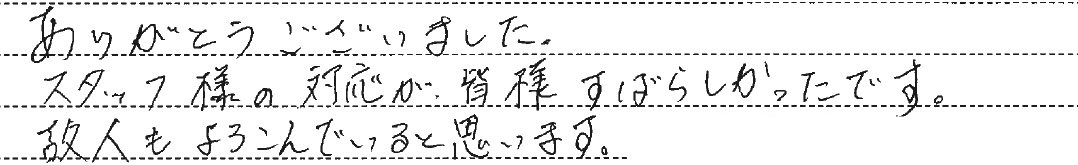 ありがとうございました。
スタッフ様の対応が、皆様すばらしかったです。
故人もよろこんでいると思います。